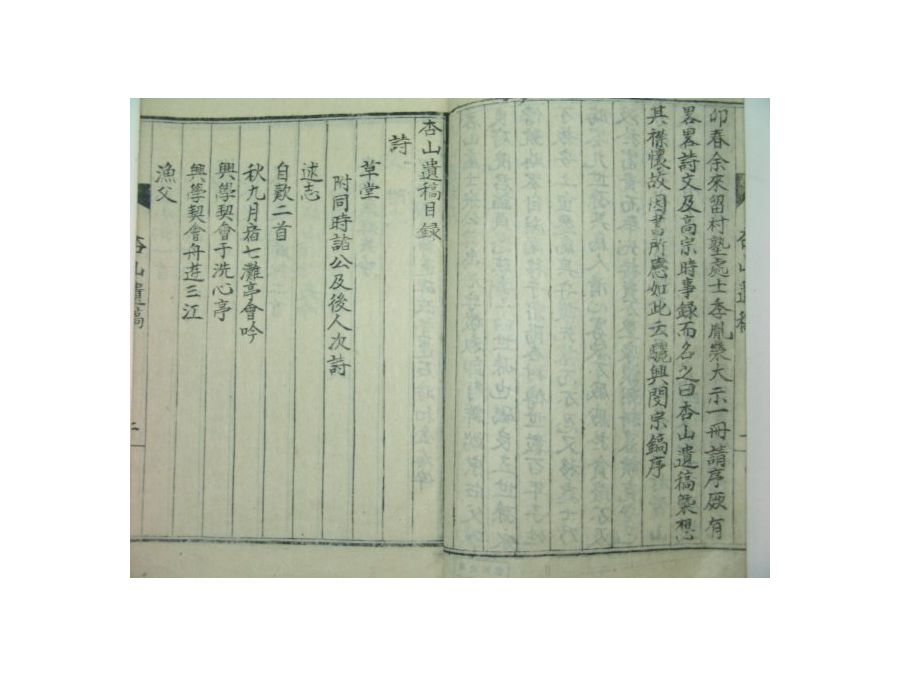 卯春余來留村塾處士季胤榮大示一冊請序厥有
畧畧詩文及高宗時事録而名之曰杏山遺稿槩想
其襟懷故因書所應如此云驪興閔宗鎬序
杏山遺稿
一
杏山遺稿目録
詩
草堂
附同時諸公及後人次詩
述志
自歎二首
秋九月宿七灘亭會吟
興學契會于洗心亭
興學契會舟遊三江
漁父
杏山遺稿
二